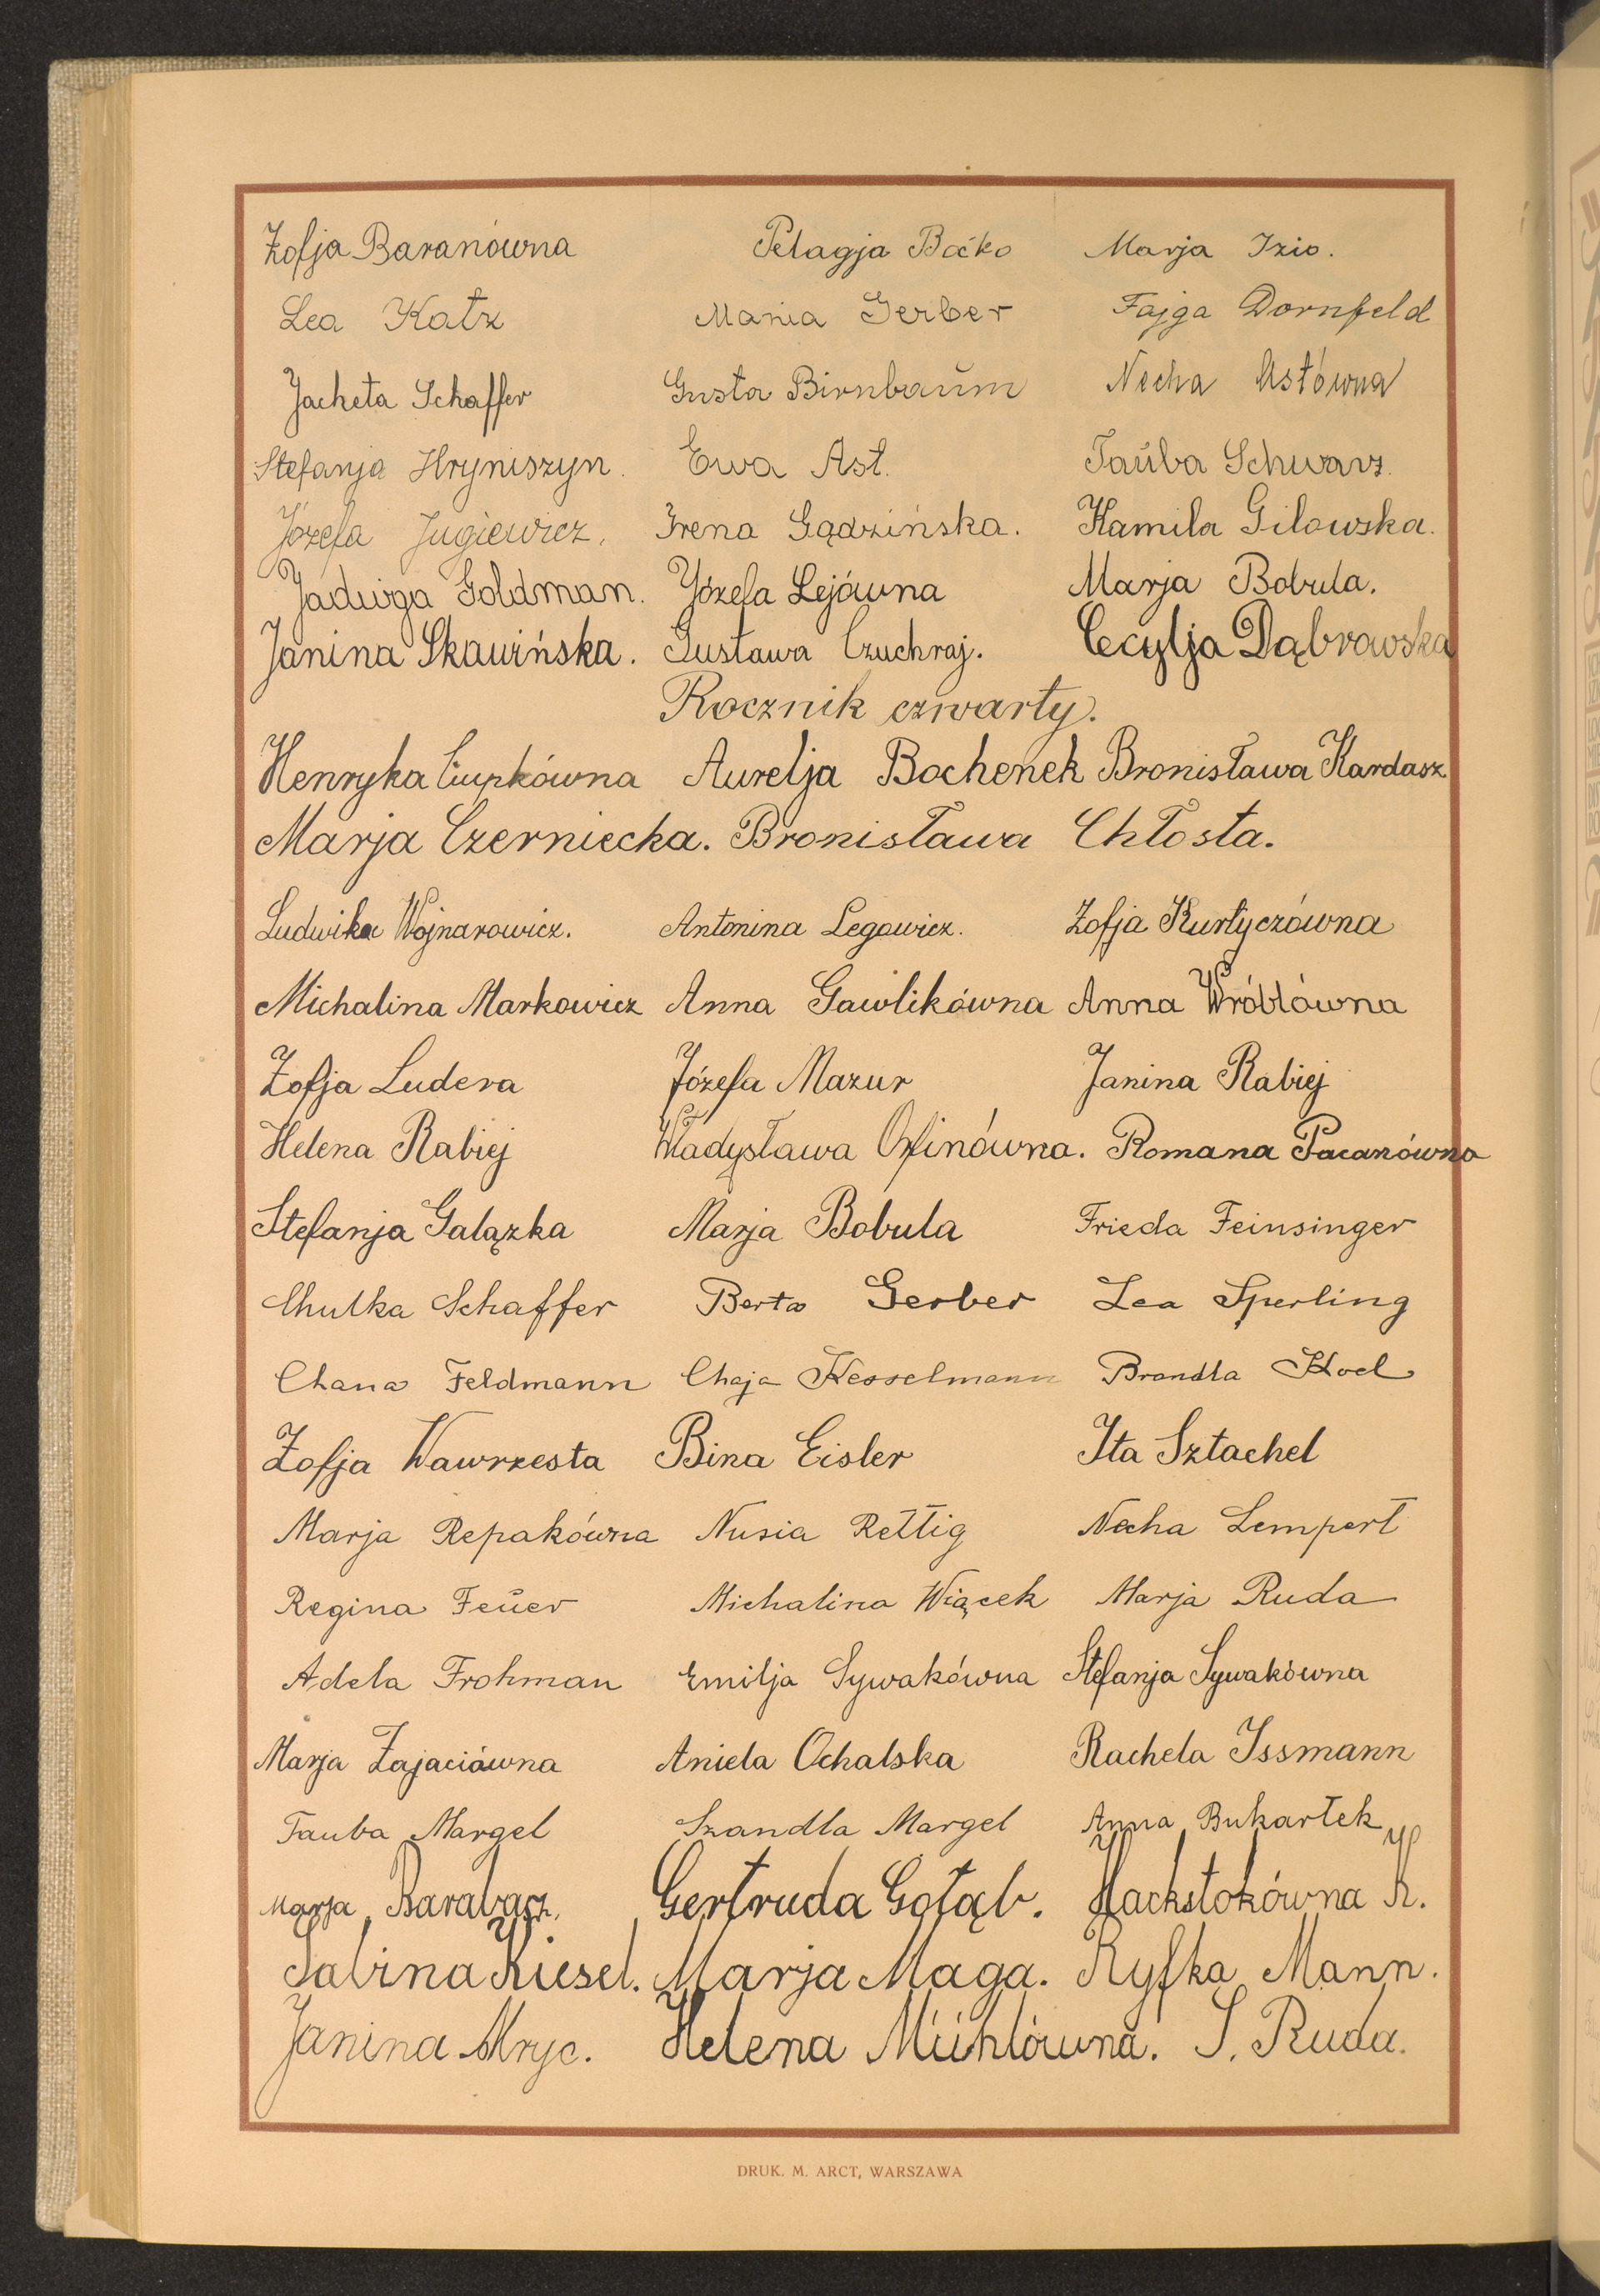 Zofja Baranówna Pelagja Boćko Marja Izio.
Lea Katz Mania Gerber Fajga Dornfeld
Jacheta Schaffer Gusta Birnbaŭm Necha Astówna
Stefanja Hryniszyn. Ewa Ast. Taŭba Schwarz.
Józefa Jugiewicz. Irena Gądzińska. Kamila Gilowska.
Jadwiga Goldman. Józefa Lejówna Marja Bobula.
Janina Skawińska. Gustawa Czuchraj. Cecylja Dąbrowska
Rocznik czwarty.
Henryka Ciupkówna Aurelja Bochenek Bronisława Kardasz
Marja Czerniecka. Bronisława Chłosta.
Ludwika Wojnarowicz. Antonina Legowicz. Zofja Kurtyczówna
Michalina Markowicz Anna Gawlikówna Anna Wróblówna
Zofja Ludera Józefa Mazur Janina Rabiej
Helena Rabiej Władysława Orfinówna. Romana Pacanówna
Stefanja Galązka Marja Bobula Frieda Feinsinger
Chulka Schaffer Berta Gerber Lea Sperling
Chana Feldmann Chaja Kesselmann Brandla Koel
Zofja Wawrzesta Bina Eisler Ita Sztachel
Marja Repakówna Nusia Rettig Necha Lempert
Regina Feŭer Michalina Wiącek Marja Ruda
Adela Frohman Emilja Sywakówna Stefanja Sywakówna
Marja Zajaciówna Aniela Ochalska Rachela Issmann
Tauba Margel Szandla Margel Anna Bukartek
Marja Barabasz. Gertruda Gołąb. Hackstokówna K.
Sabina Kiesel. Marja Maga. Ryfka Mann.
Janina Mryc. Helena Mühlówna. S. Ruda.
DRUK. M. ARCT, WARSZAWA